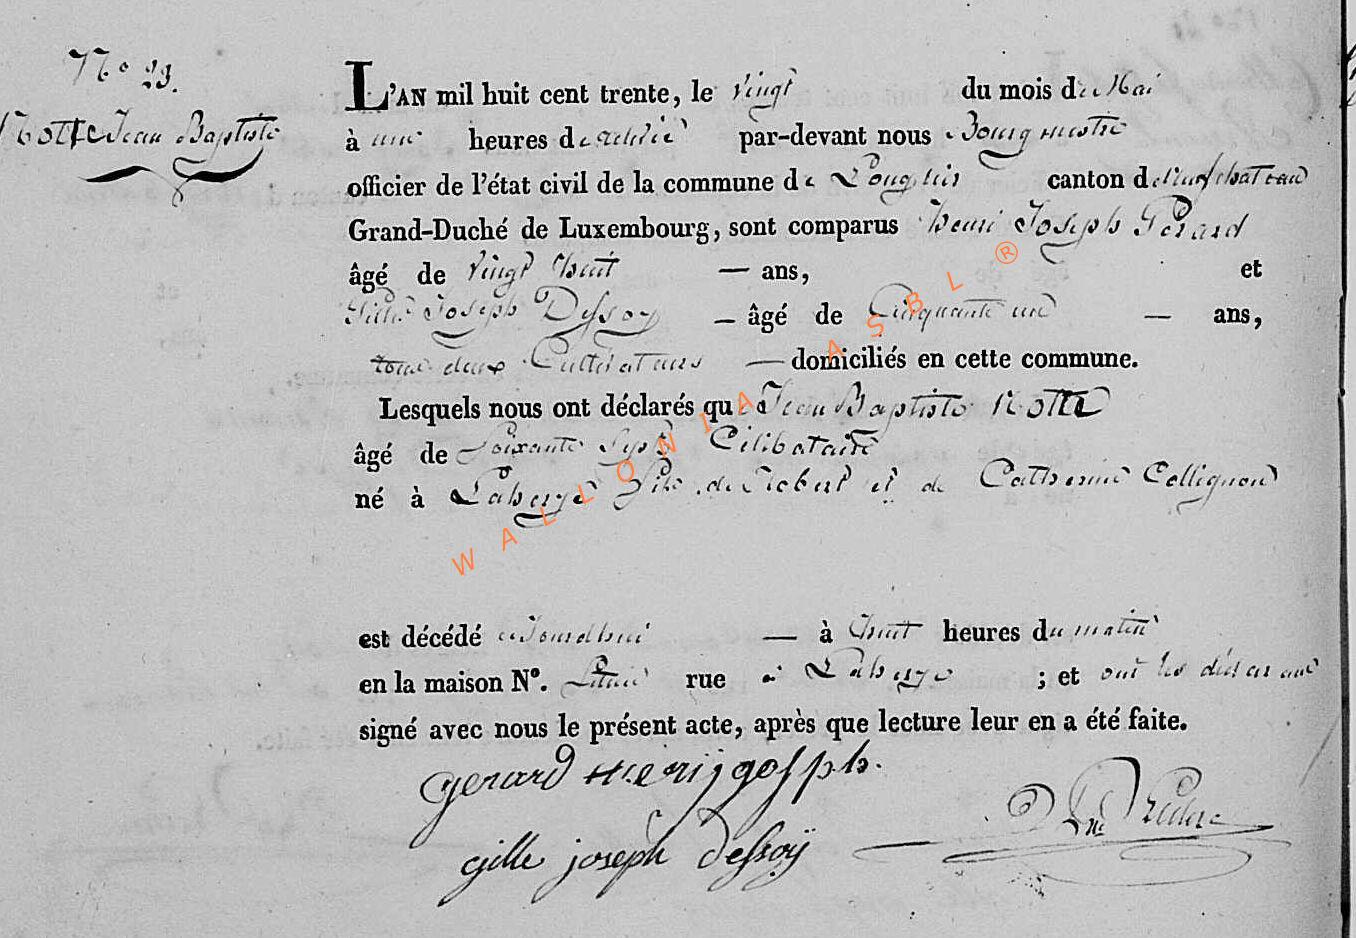 N° 23.
Notte Jean Baptiste
L'AN mil huit cent trente, le vingt du mois de Mai
à une heures de relevée par-devant nous Bourgmestre
officier de l'état civil de la commune de Longlier canton de Neufchateau
Grand-Duché de Luxembourg, sont comparus Henri Joseph Gérard
âgé de vingt huit — ans, et
Gille Joseph Dessoy — âgé de Cinquante un — ans,
tous deux Cultivateurs — domiciliés en cette commune.
Lesquels nous ont déclarés que Jean Baptiste Notte
âgé de Soixante Sept Célibataire
né à Laherye fils de et de Catherine Collignon
est décédé aujourdhui — à huit heures du matin
en la maison N°. rue à Laherye ; et ont les déclarans
signé avec nous le présent acte, après que lecture leur en a été faite.
gerard Henrij josph.
gille joseph dessoÿ
WALLONIA ASBL ®